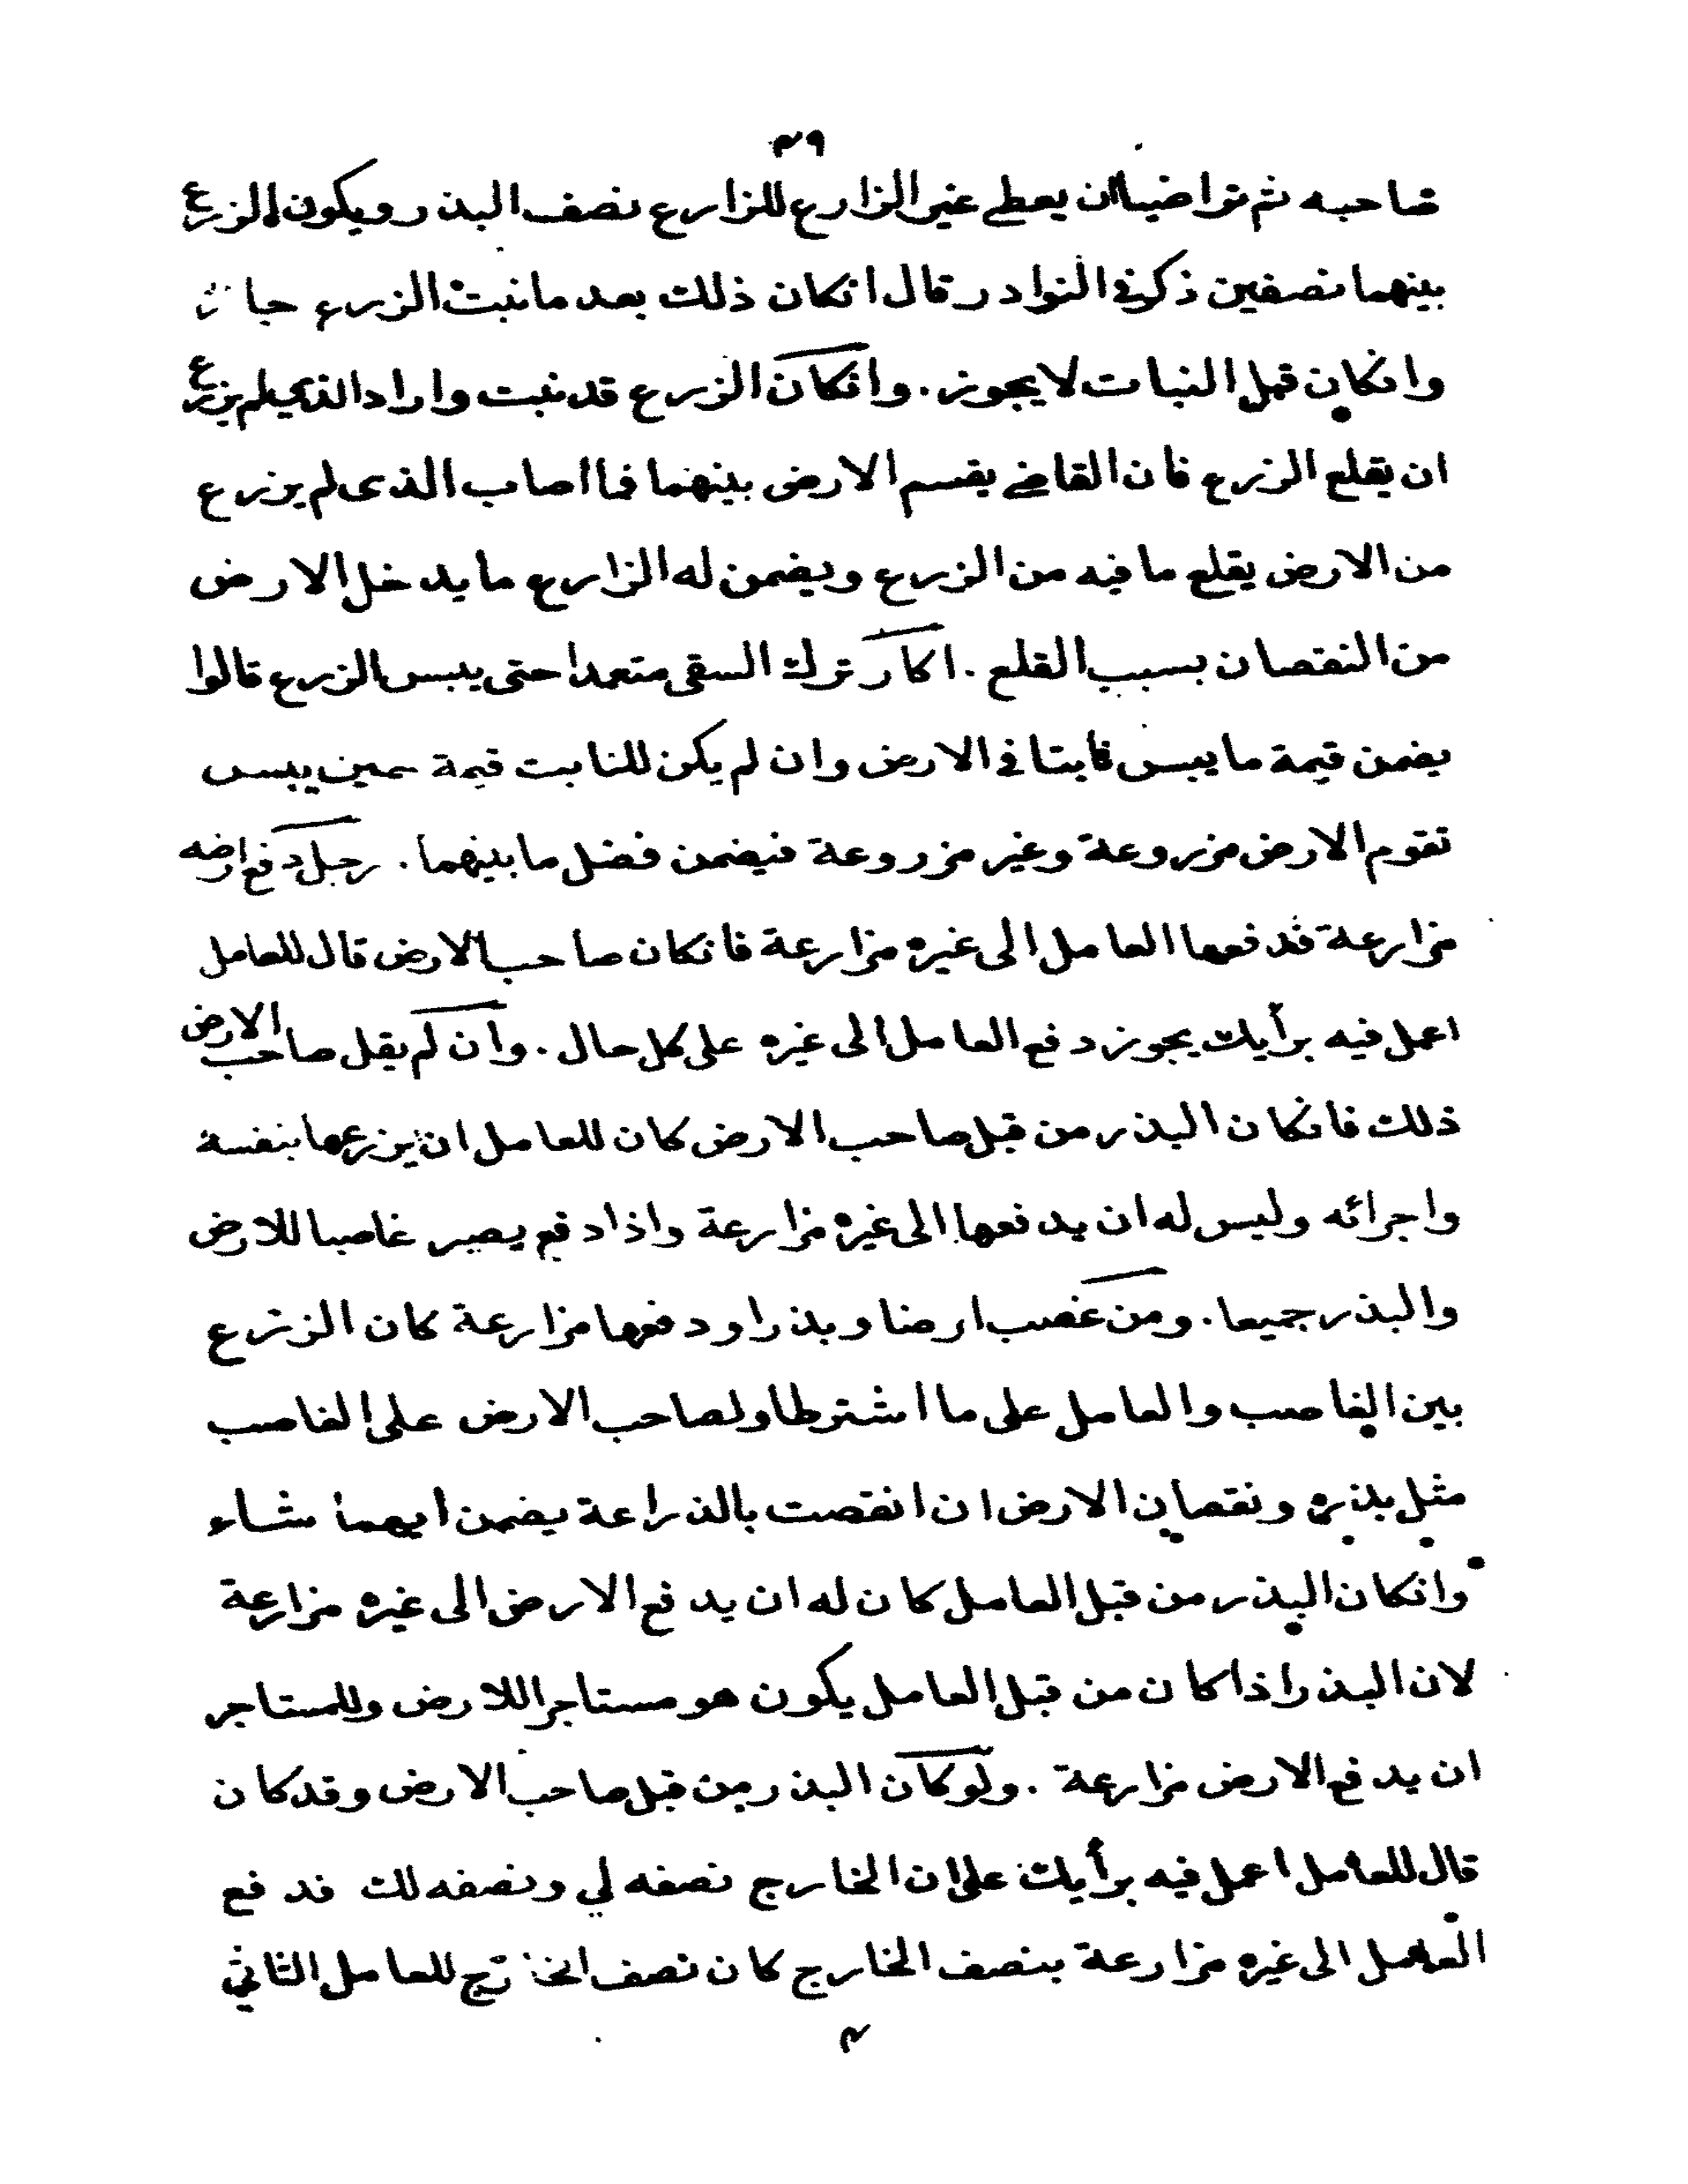 ٣٩
صاحبه ثم تراضيا ان يعطي غير الزارع للزارع نصف البذر ويكون الزرع
بينهما نصفين ذكر في النوادر قال انكان ذلك بعد مانبت الزرع جاز
وانكان قبل النبات لا يجوز . وانكان الزرع قد نبت واراد الذي لم يزرع
ان يقلع الزرع فان القاضي يقسم الارض بينهما فما اصاب الذى لم يزرع
من الارض يقلع ما فيه من الزرع ويضمن له الزارع ما يدخل الارض
من النقصان بسبب القلع . اكار ترك السقى متعمدا حتى يبس الزرع قالوا
يضمن قيمة ما يبس ثابتا في الارض وان لم يكن للنابت قيمة حين يبس
تقوم الارض مزروعة وغير مزروعة فيضمن فضل ما بينهما . رجل دفع ارضه
مزارعة فدفعها العامل الى غيره مزارعة فانكان صاحب الارض قال للعامل
اعمل فيه برأيك يجوز دفع العامل الى غيره على كل حال . وان لم يقل صاحب الارض
ذلك فانكان البذر من قبل صاحب الارض كان للعامل ان يزرعها بنفسه
واجرائه وليس له ان يدفعها الى غيره مزارعة واذا دفع يصير غاصبا للارض
والبذر جميعا . ومن غصب ارضا وبذرا ودفعها مزارعة كان الزرع
بين الغاصب والعامل على ما اشترطا ولصاحب الارض على الغاصب
مثل بذره ونقصان الارض ان انقصت بالذراعة يضمن ايهما شاء
وانكان البذر من قبل العامل كان له ان يدفع الارض الى غيره مزارعة
لان البذر اذا كان من قبل العامل يكون هو مستاجرا للارض وللمستاجر
ان يدفع الارض مزارعة . ولو كان البذر من قبل صاحب الارض وقد كان
قال للعامل اعمل فيه برأيك على ان الخارج نصفه لي ونصفه لك فدفع
العامل الى غيره مزارعة بنصف الخارج كان نصف الخارج للعامل الثاني